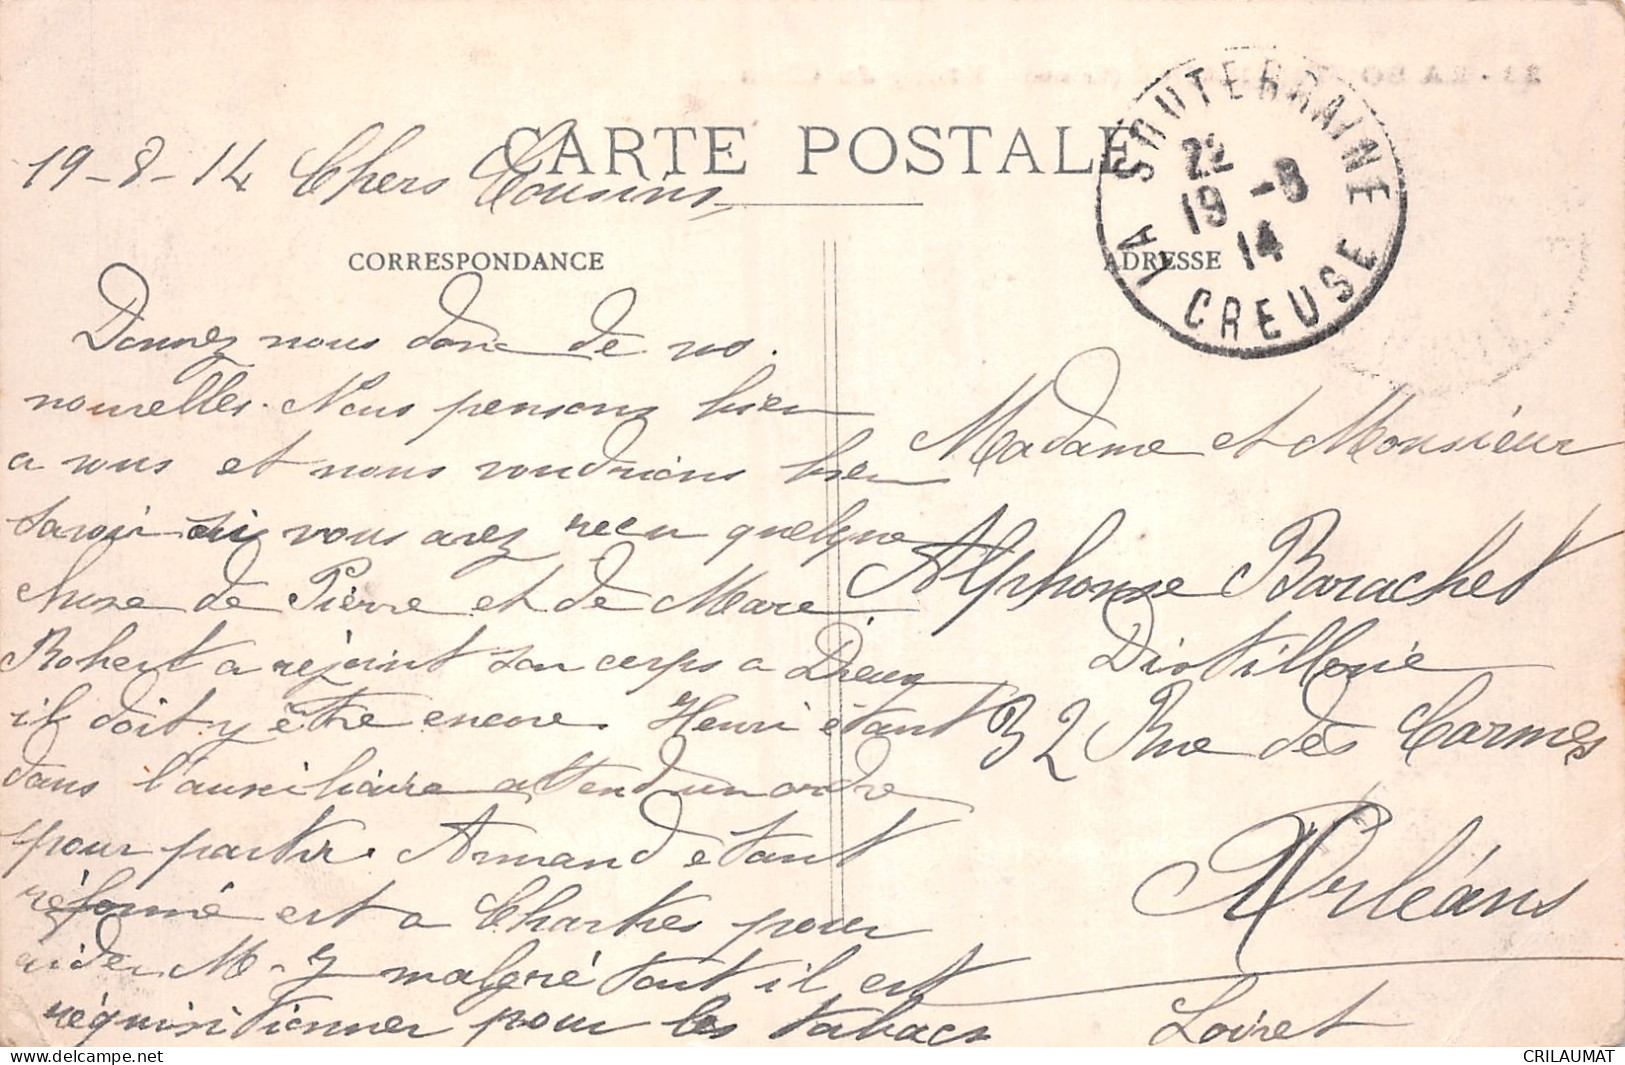 CARTE POSTALE
19-8-14 Chers Cousins
CORRESPONDANCE
ADRESSE
LA SOUTERRAINE
22
19 -8
14
CREUSE
Donnez nous donc de vos
nouvelles. Nous pensons bien
a vous et nous voudrions bien
savoir si vous avez reçu quelque
chose de Pierre et de Marc
Robert a rejoint son corps a Dreux
il doit y être encore. Henri étant
dans l'auxiliaire attend un ordre
pour partir. Armand étant
réformé est a Chartres pour
aider M- malgré tout il est
réquisitionner pour les tabacs
Madame et Monsieur
Alphonse Barachet
Distillerie
32 Rue des Carmes
Orléans
Loiret
CRILAUMAT